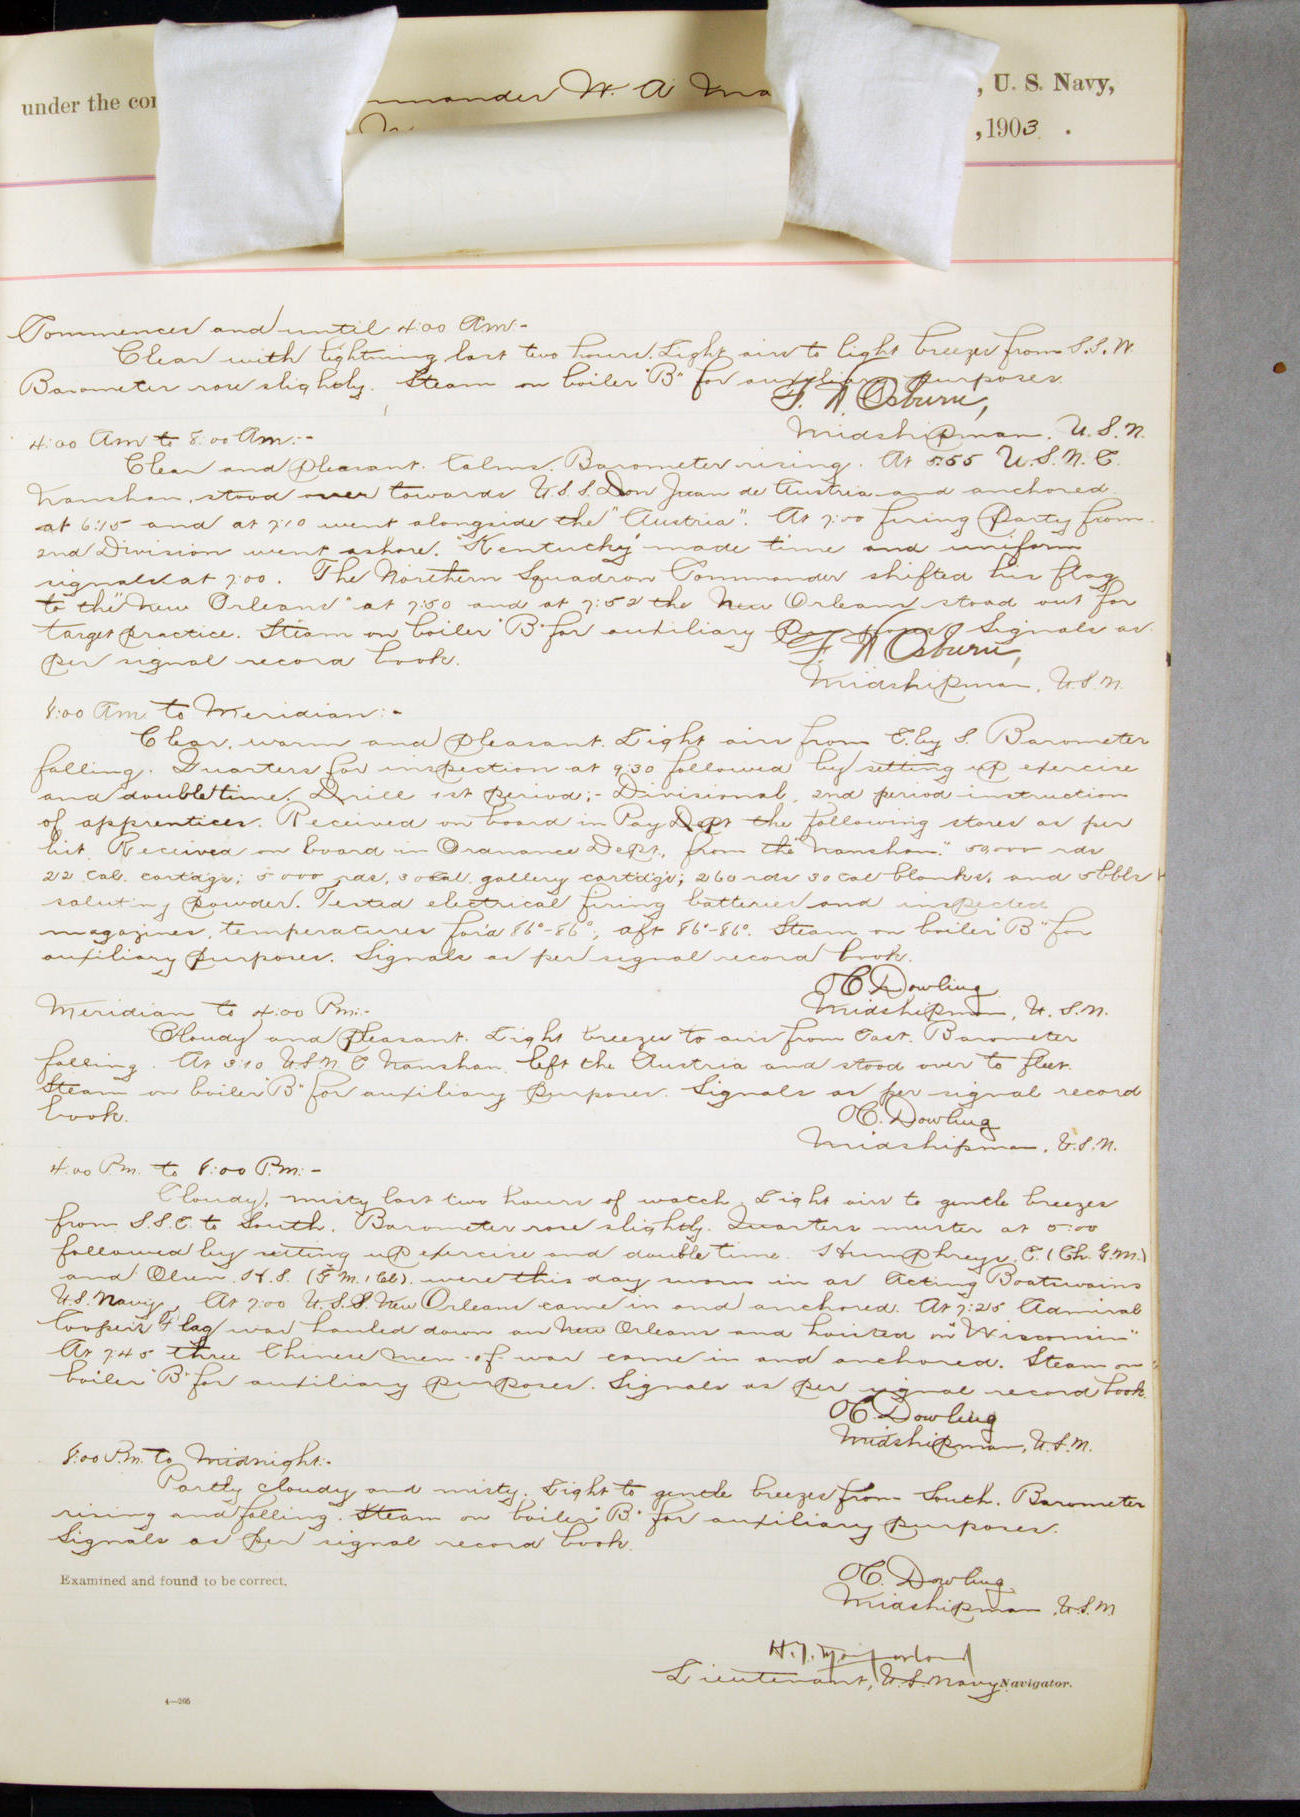 under the com
mmander W. A. Ma
, U. S. Navy,
, 1903 .
Commences and until 4:00 Am:-
Clear with lightning last two hours. Light airs to light breezes from S.S.W.
Barometer rose slightly. Steam on boiler "B" for auxiliary purposes.
F. N. Osburn,
Midshipman, U.S.N.
4:00 Am to 8:00 Am:-
Clear and pleasant. Calms. Barometer rising. At 5:55 U.S.N.C.
Nanshan, stood over towards U.S.S. Don Juan de Austria and anchored
at 6:15 and at 7:10 went alongside the "Austria". At 7:00 firing party from
2nd Division went ashore. "Kentucky" made time and uniform
signals at 7:00. The Northern Squadron Commander shifted his flag
to the "New Orleans" at 7:50 and at 7:52 the New Orleans stood out for
target practice. Steam on boiler "B" for auxiliary purposes. Signals as
per signal record book.
F. N. Osburn,
Midshipman, U.S.N.
8:00 Am to Meridian:-
Clear, warm and pleasant. Light airs from E. by S. Barometer
falling. Quarters for inspection at 9:30 followed by setting up exercise
and double time. Drill 1st period;- Divisional, 2nd period instruction
of apprentices. Received on board in Pay Dept the following stores as per
list. Received on board in Ordnance Dept., from the "Nanshan." 50,000 rds
22 cal. cartdgs; 5000 rds. 30 cal. gallery cartdgs; 260 rds 30 cal blanks, and 5 bbls
saluting powder. Tested electrical firing batteries and inspected
magazines, temperatures for'd 86°-86°; aft 86°-86°. Steam on boiler "B" for
auxiliary purposes. Signals as per signal record book.
O. Dowling
Midshipman, U.S.N.
Meridian to 4:00 Pm:-
Cloudy and pleasant. Light breezes to airs from East. Barometer
falling. At 3:10 U.S.N.C. Nanshan left the Austria and stood over to fleet.
Steam on boiler "B" for auxiliary purposes. Signals as per signal record
book.
O. Dowling
Midshipman, U.S.N.
4:00 P.m. to 8:00 P.m:-
Cloudy, misty last two hours of watch. Light airs to gentle breezes
from S.S.E. to South. Barometer rose slightly. Quarters muster at 5:00
followed by setting up exercise and double time. Humphreys, E. (Ch. G.M.)
and Olsen, H.S. (G.M. 1 Cl). were this day sworn in as Acting Boatswains
U.S. Navy. At 7:00 U.S.S. New Orleans came in and anchored. At 7:25 Admiral
Cooper's Flag was hauled down on New Orleans and hoisted on "Wisconsin"
At 7:45 three Chinese men-of-war came in and anchored. Steam on
boiler "B" for auxiliary purposes. Signals as per signal record book.
O. Dowling
Midshipman, U.S.N.
8:00 P.m. to Midnight:-
Partly cloudy and misty. Light to gentle breezes from South. Barometer
rising and falling. Steam on boiler "B" for auxiliary purposes.
Signals as per signal record book.
Examined and found to be correct.
O. Dowling
Midshipman, U.S.N.
Lieutenant, U.S. Navy, Navigator.
4—205